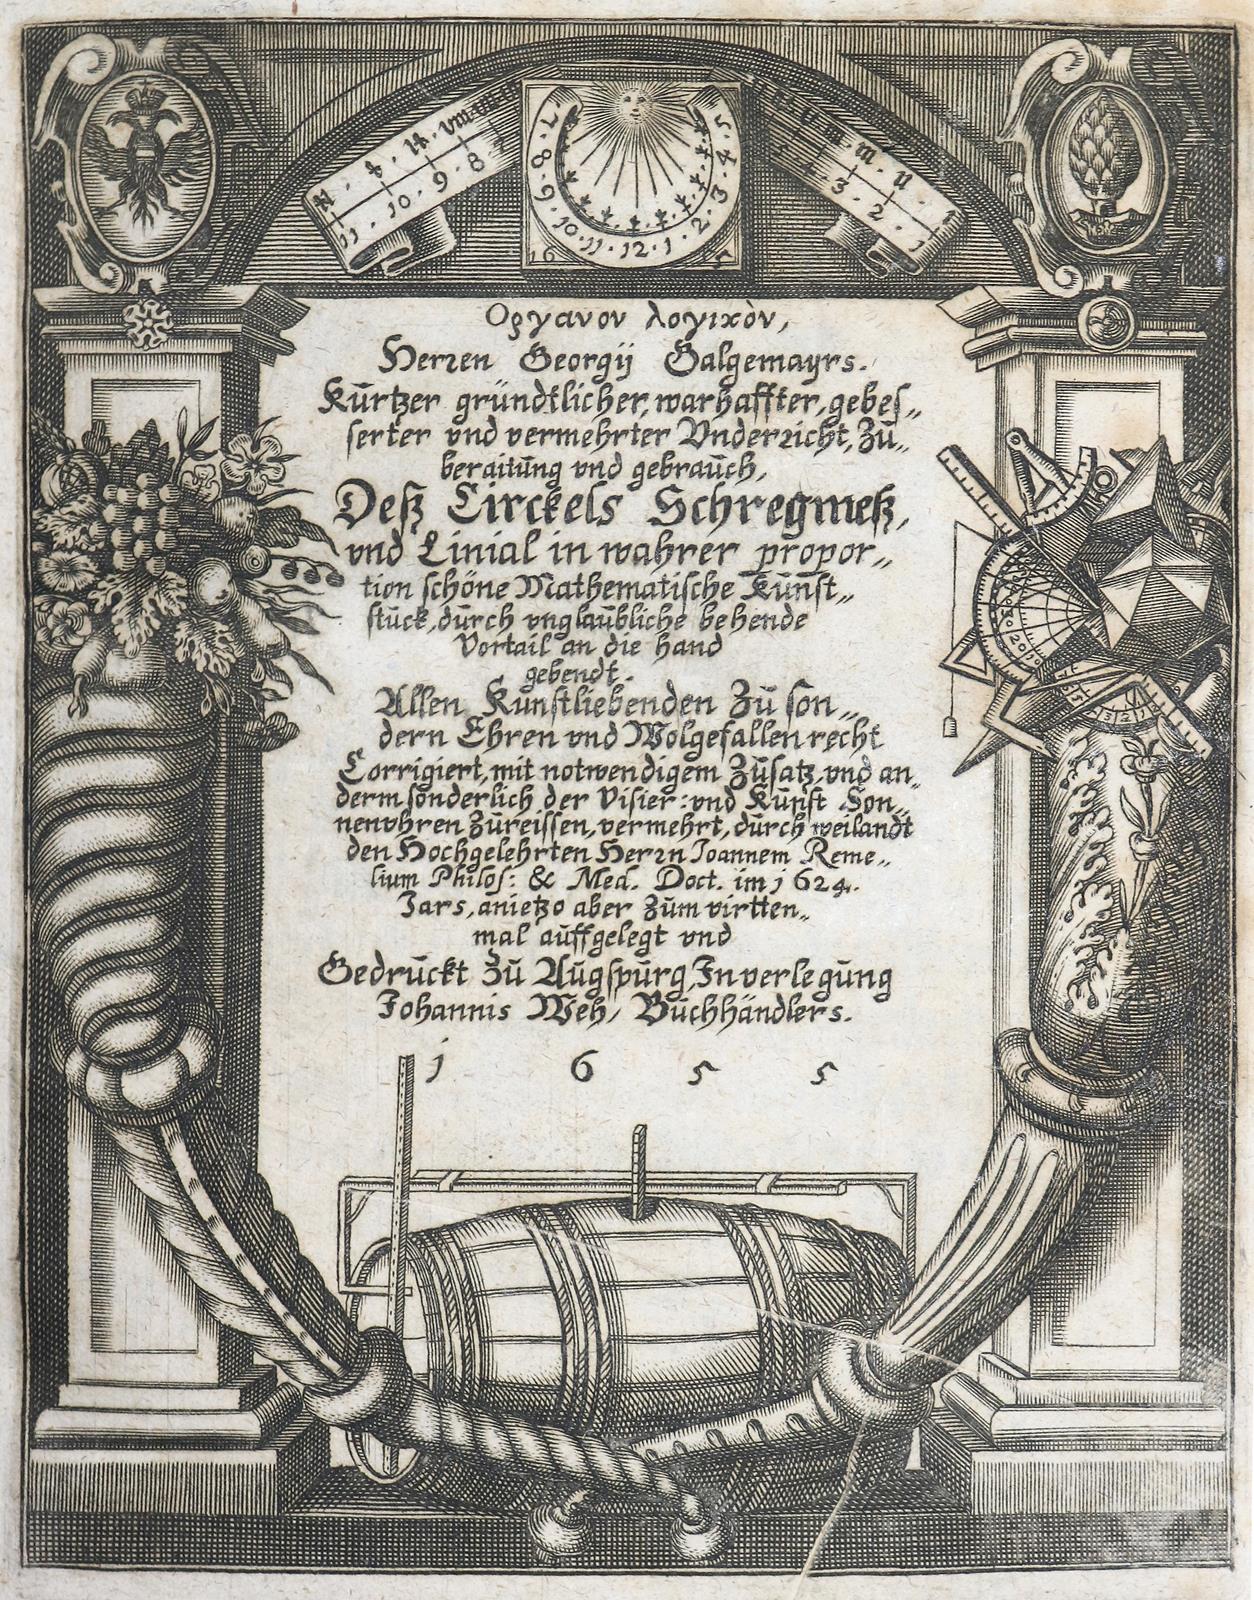 7 8 9 10 11 12 1 2 3 4 5
16
11 · 10 · 9 · 8
3 · 2 · 1
Οργανον λογικὸν,
Herren Georgij Galgemayrs.
Kurtzer gründtlicher, warhaffter, gebes„
serter vnd vermehrter Vnderricht, Zu„
beraitung vnd gebrauch,
Deß Circkels Schregmeß,
vnd Linial in wahrer propor„
tion schöne Mathematische Kunst„
stuck, durch vnglaubliche behende
Vortail an die hand
gebendt.
Allen Kunstliebenden Zu son„
dern Ehren vnd Wolgefallen recht
Corrigiert, mit notwendigem Zusatz, vnd an„
derm sonderlich der Visier: vnd Kunst Son„
nenvhren Zureissen, vermehrt, durch weilandt
den Hochgelehrten Herrn Joannem Reme„
lium Philos: & Med. Doct. im 1624.
Jars, anietzo aber Zum virtten„
mal auffgelegt vnd
Gedruckt Zu Augspurg, In verlegung
Johannis Weh, Buchhändlers.
1 6 5 5